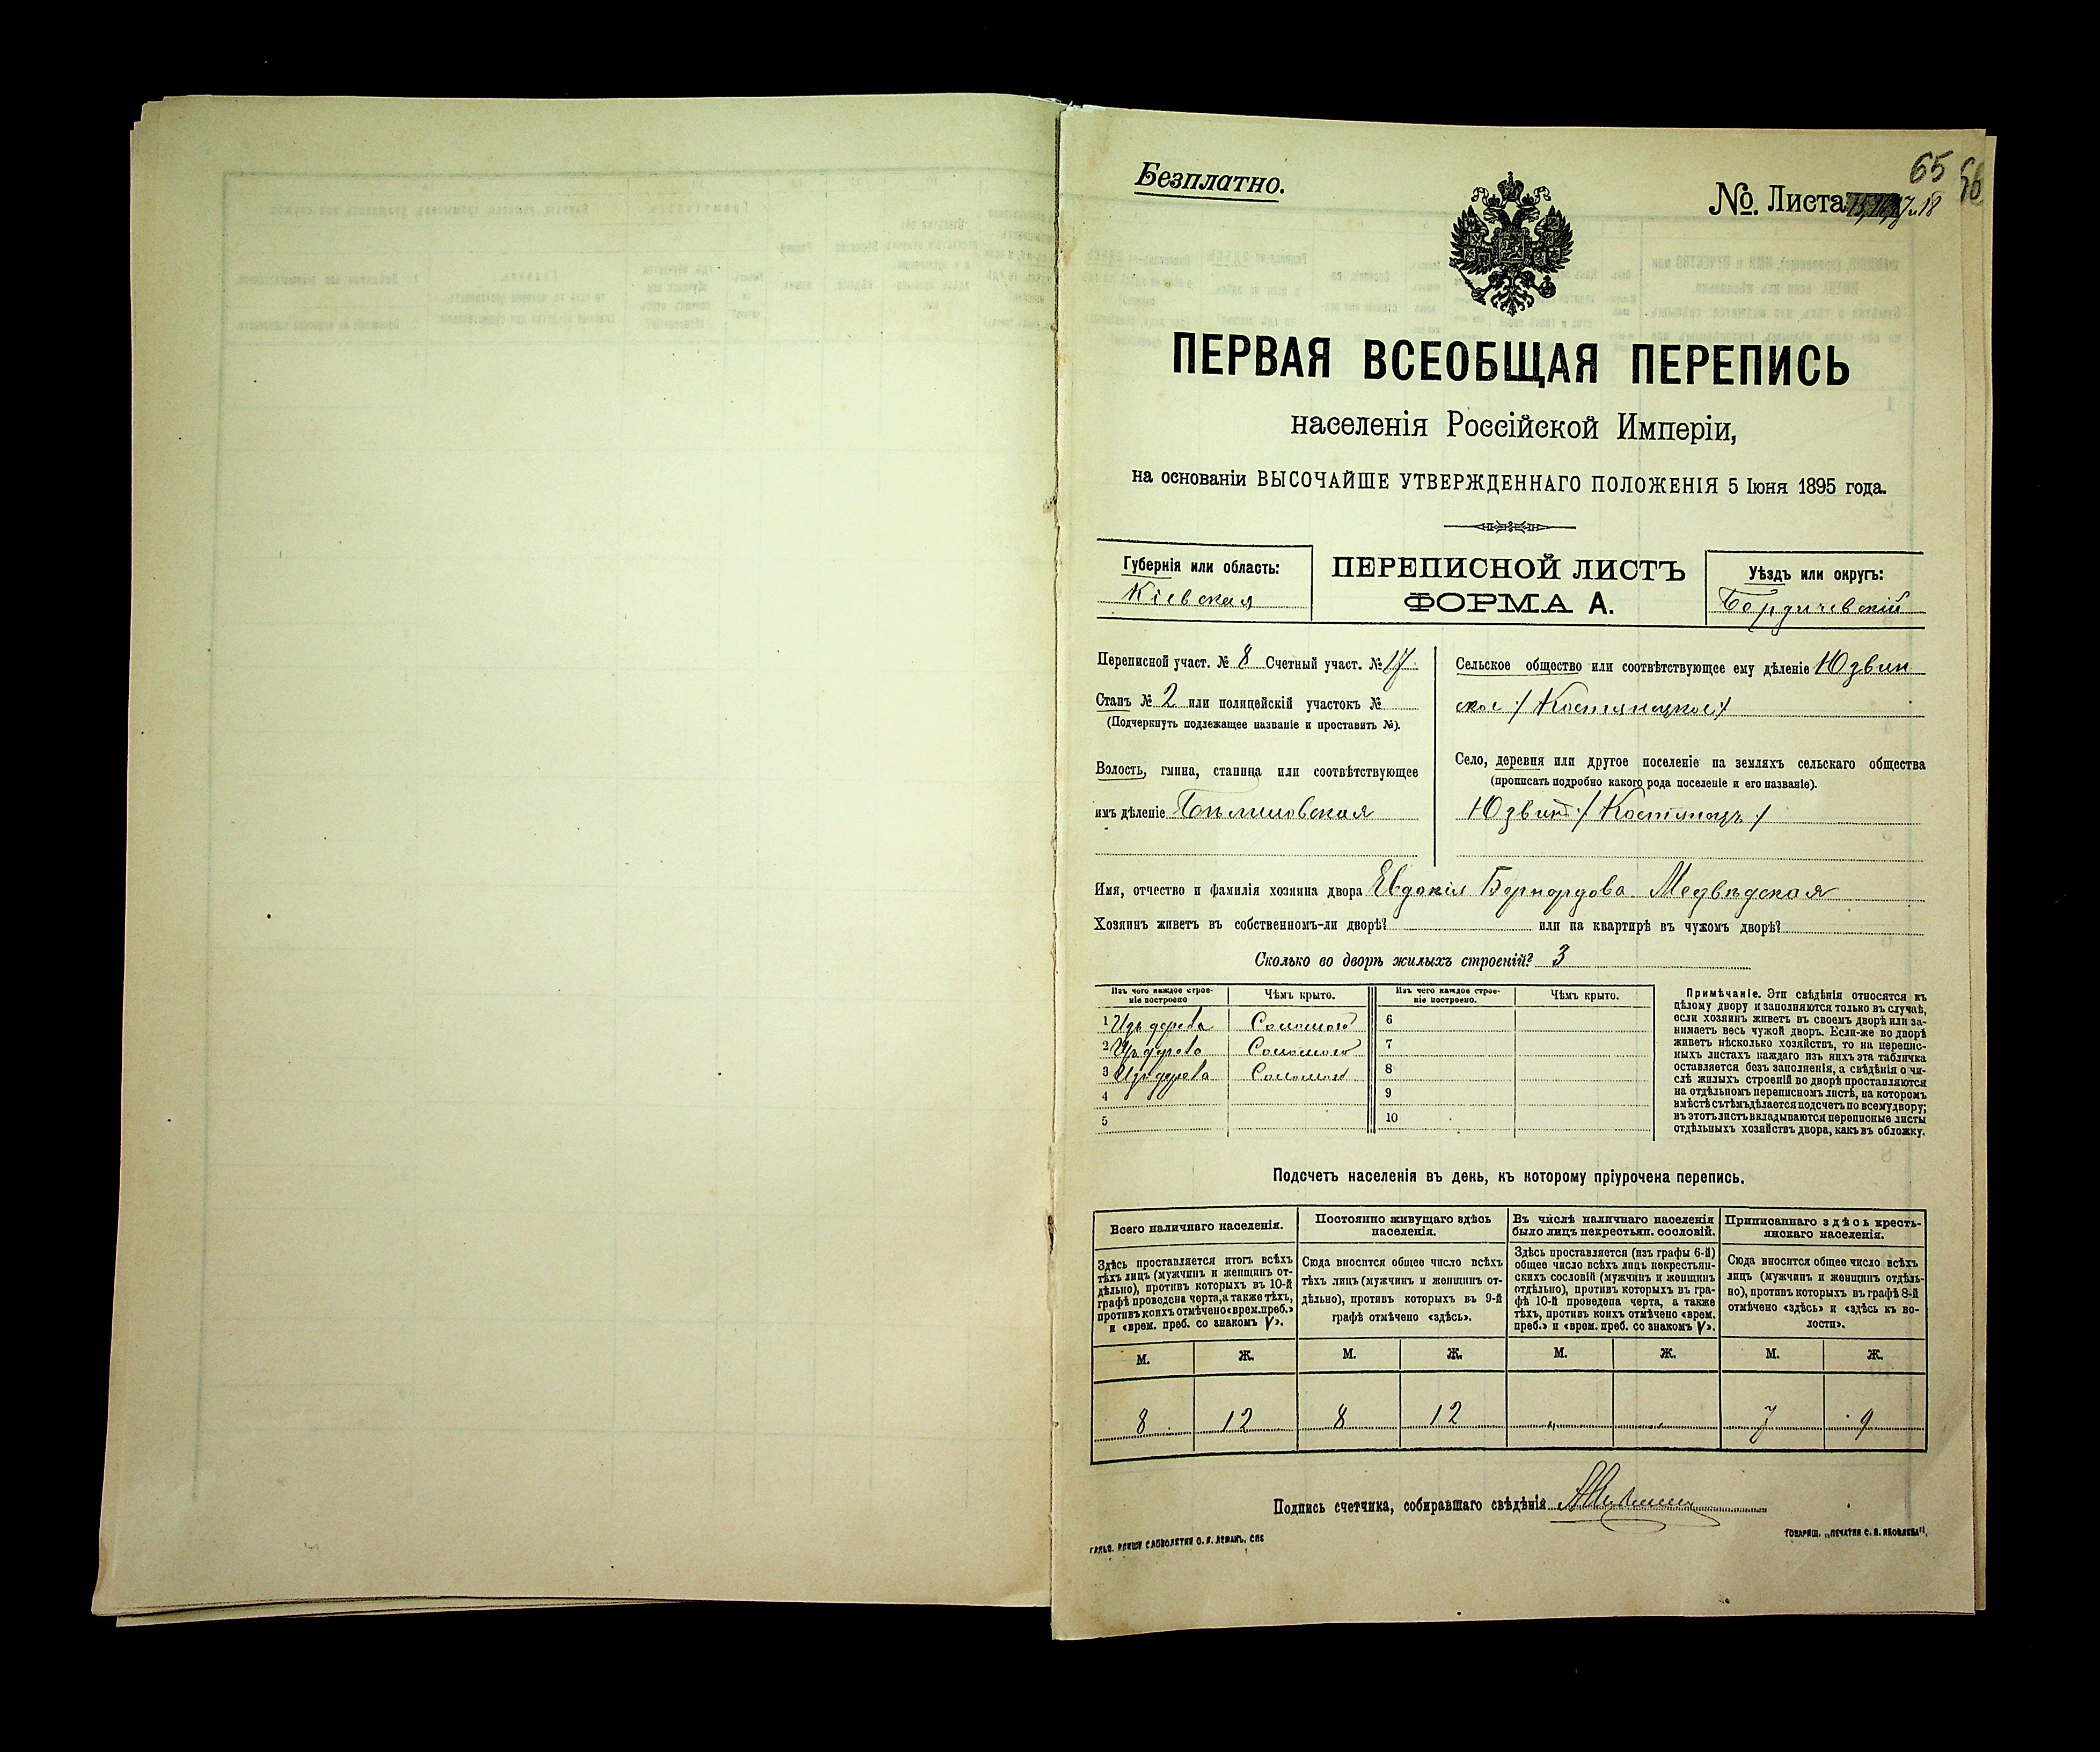 Безплатно.
65
56
№. Листа 17 и 18
ПЕРВАЯ ВСЕОБЩАЯ ПЕРЕПИСЬ
населенія Россійской Имперіи,
на основаніи ВЫСОЧАЙШЕ УТВЕРЖДЕННАГО ПОЛОЖЕНІЯ 5 Іюня 1895 года.
Губернія или область:
Кіевская
ПЕРЕПИСНОЙ ЛИСТЪ
ФОРМА А.
Уѣздъ или округъ:
Бердичевскій
Переписной участ. № 8 Счетный участ. № 17
Станъ № 2 или полицейскій участокъ №
(Подчеркнуть подлежащее названіе и проставить №).
Волость, гмина, станица или соотвѣтствующее
имъ дѣленіе Бѣлиловская
Сельское общество или соотвѣтствующее ему дѣленіе Юзвин
ское / Костянецкое /
Село, деревня или другое поселеніе на земляхъ сельскаго общества
(прописать подробно какого рода поселеніе и его названіе).
Юзвин / Костянецъ /
Имя, отчество и фамилія хозяина двора Евдокія Бернардова Медвѣдская
Хозяинъ живетъ въ собственномъ-ли дворѣ? или на квартирѣ въ чужомъ дворѣ?
Сколько во дворѣ жилыхъ строеній? 3
Изъ чего каждое строе-
ніе построено
Чѣмъ крыто.
Изъ чего каждое строе-
ніе построено.
Чѣмъ крыто.
1 Изъ дерева Соломою 6
2 Изъ дерева Соломою 7
3 Изъ дерева Соломою 8
4 9
5 10
Примѣчаніе. Эти свѣдѣнія относятся къ
цѣлому двору и заполняются только въ случаѣ,
если хозяинъ живетъ въ своемъ дворѣ или за-
нимаетъ весь чужой дворъ. Если-же во дворѣ
живетъ нѣсколько хозяйствъ, то на перепис-
ныхъ листахъ каждаго изъ нихъ эта табличка
оставляется безъ заполненія, а свѣдѣнія о чи-
слѣ жилыхъ строеній во дворѣ проставляются
на отдѣльномъ переписномъ листѣ, на которомъ
вмѣстѣ съ тѣмъ дѣлается подсчетъ по всему двору;
въ этотъ листъ вкладываются переписные листы
отдѣльныхъ хозяйствъ двора, какъ въ обложку.
Подсчетъ населенія въ день, къ которому пріурочена перепись.
Всего наличнаго населенія.
Здѣсь проставляется итогъ всѣхъ
тѣхъ лицъ (мужчинъ и женщинъ от-
дѣльно), противъ которыхъ въ 10-й
графѣ проведена черта, а также тѣхъ,
противъ коихъ отмѣчено «врем. преб.»
и «врем. преб. со знакомъ V».
Постоянно живущаго здѣсь
населенія.
Сюда вносится общее число всѣхъ
тѣхъ лицъ (мужчинъ и женщинъ от-
дѣльно), противъ которыхъ въ 9-й
графѣ отмѣчено «здѣсь».
Въ числѣ наличнаго населенія
было лицъ некрестьян. сословій.
Здѣсь проставляется (изъ графы 6-й)
общее число всѣхъ лицъ некрестьян-
скихъ сословій (мужчинъ и женщинъ
отдѣльно), противъ которыхъ въ гра-
фѣ 10-й проведена черта, а также
тѣхъ, противъ коихъ отмѣчено «врем.
преб.» и «врем. преб. со знакомъ V».
Приписаннаго здѣсь кресть-
янскаго населенія.
Сюда вносится общее число всѣхъ
лицъ (мужчинъ и женщинъ отдѣль-
но), противъ которыхъ въ графѣ 8-й
отмѣчено «здѣсь» и «здѣсь къ во-
лости».
М. Ж. М. Ж. М. Ж. М. Ж.
8 12 8 12 „ „ 7 9
Подпись счетчика, собиравшаго свѣдѣнія
ТОВАРИЩ. „ПЕЧАТНЯ С. П. ЯКОВЛЕВА".